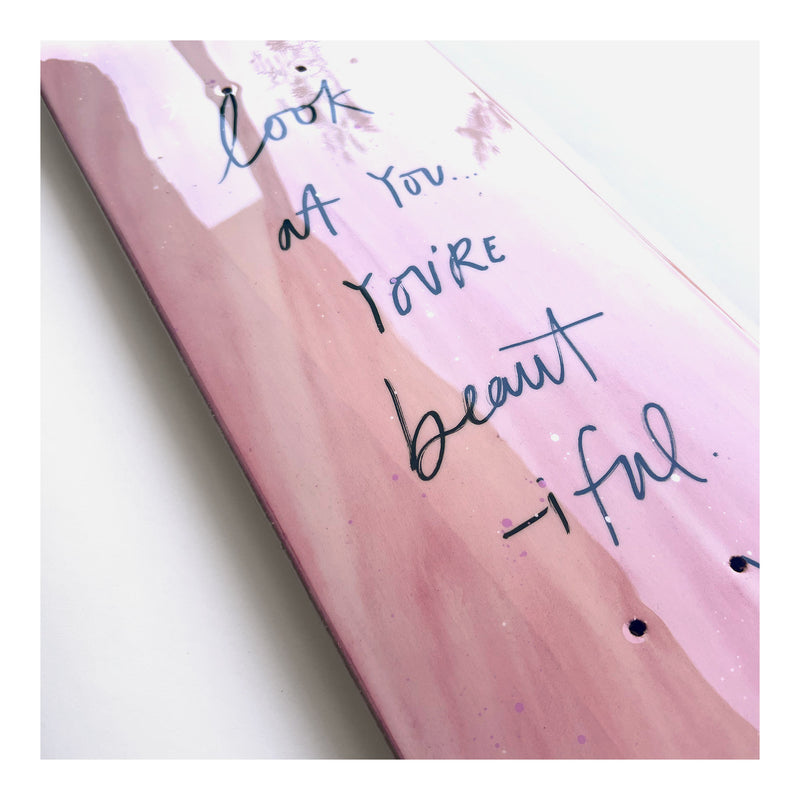 look
at You...
You'RE
beaut
-iful.